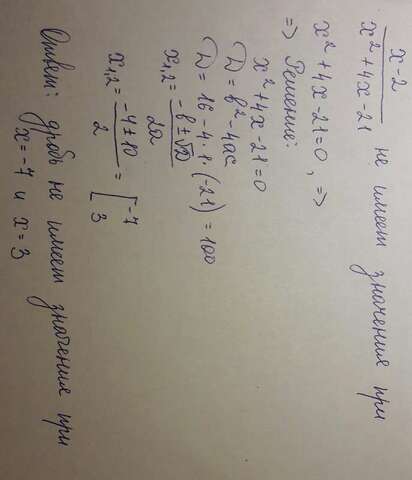 x-2
x²+4x-21 не имеет значения при
x²+4x-21=0, =>
=> Решение:
x²+4x-21=0
D=b²-4ac
D=16-4·1·(-21)=100
x1,2=-b±√D
2a
x1,2=-4±10=[-7
2 3
Ответ: дробь не имеет значения при
x=-7 и x=3